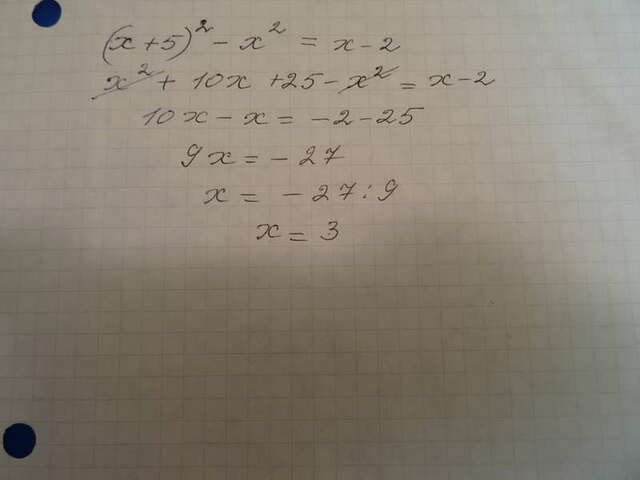 (x+5)² - x² = x-2
x² + 10x + 25 - x² = x-2
10x - x = -2-25
9x = -27
x = -27:9
x = 3